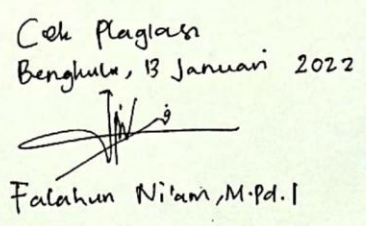 Cek Plagiasi
Bengkulu, 13 Januari 2022
Falahun Ni'am, M.Pd.I